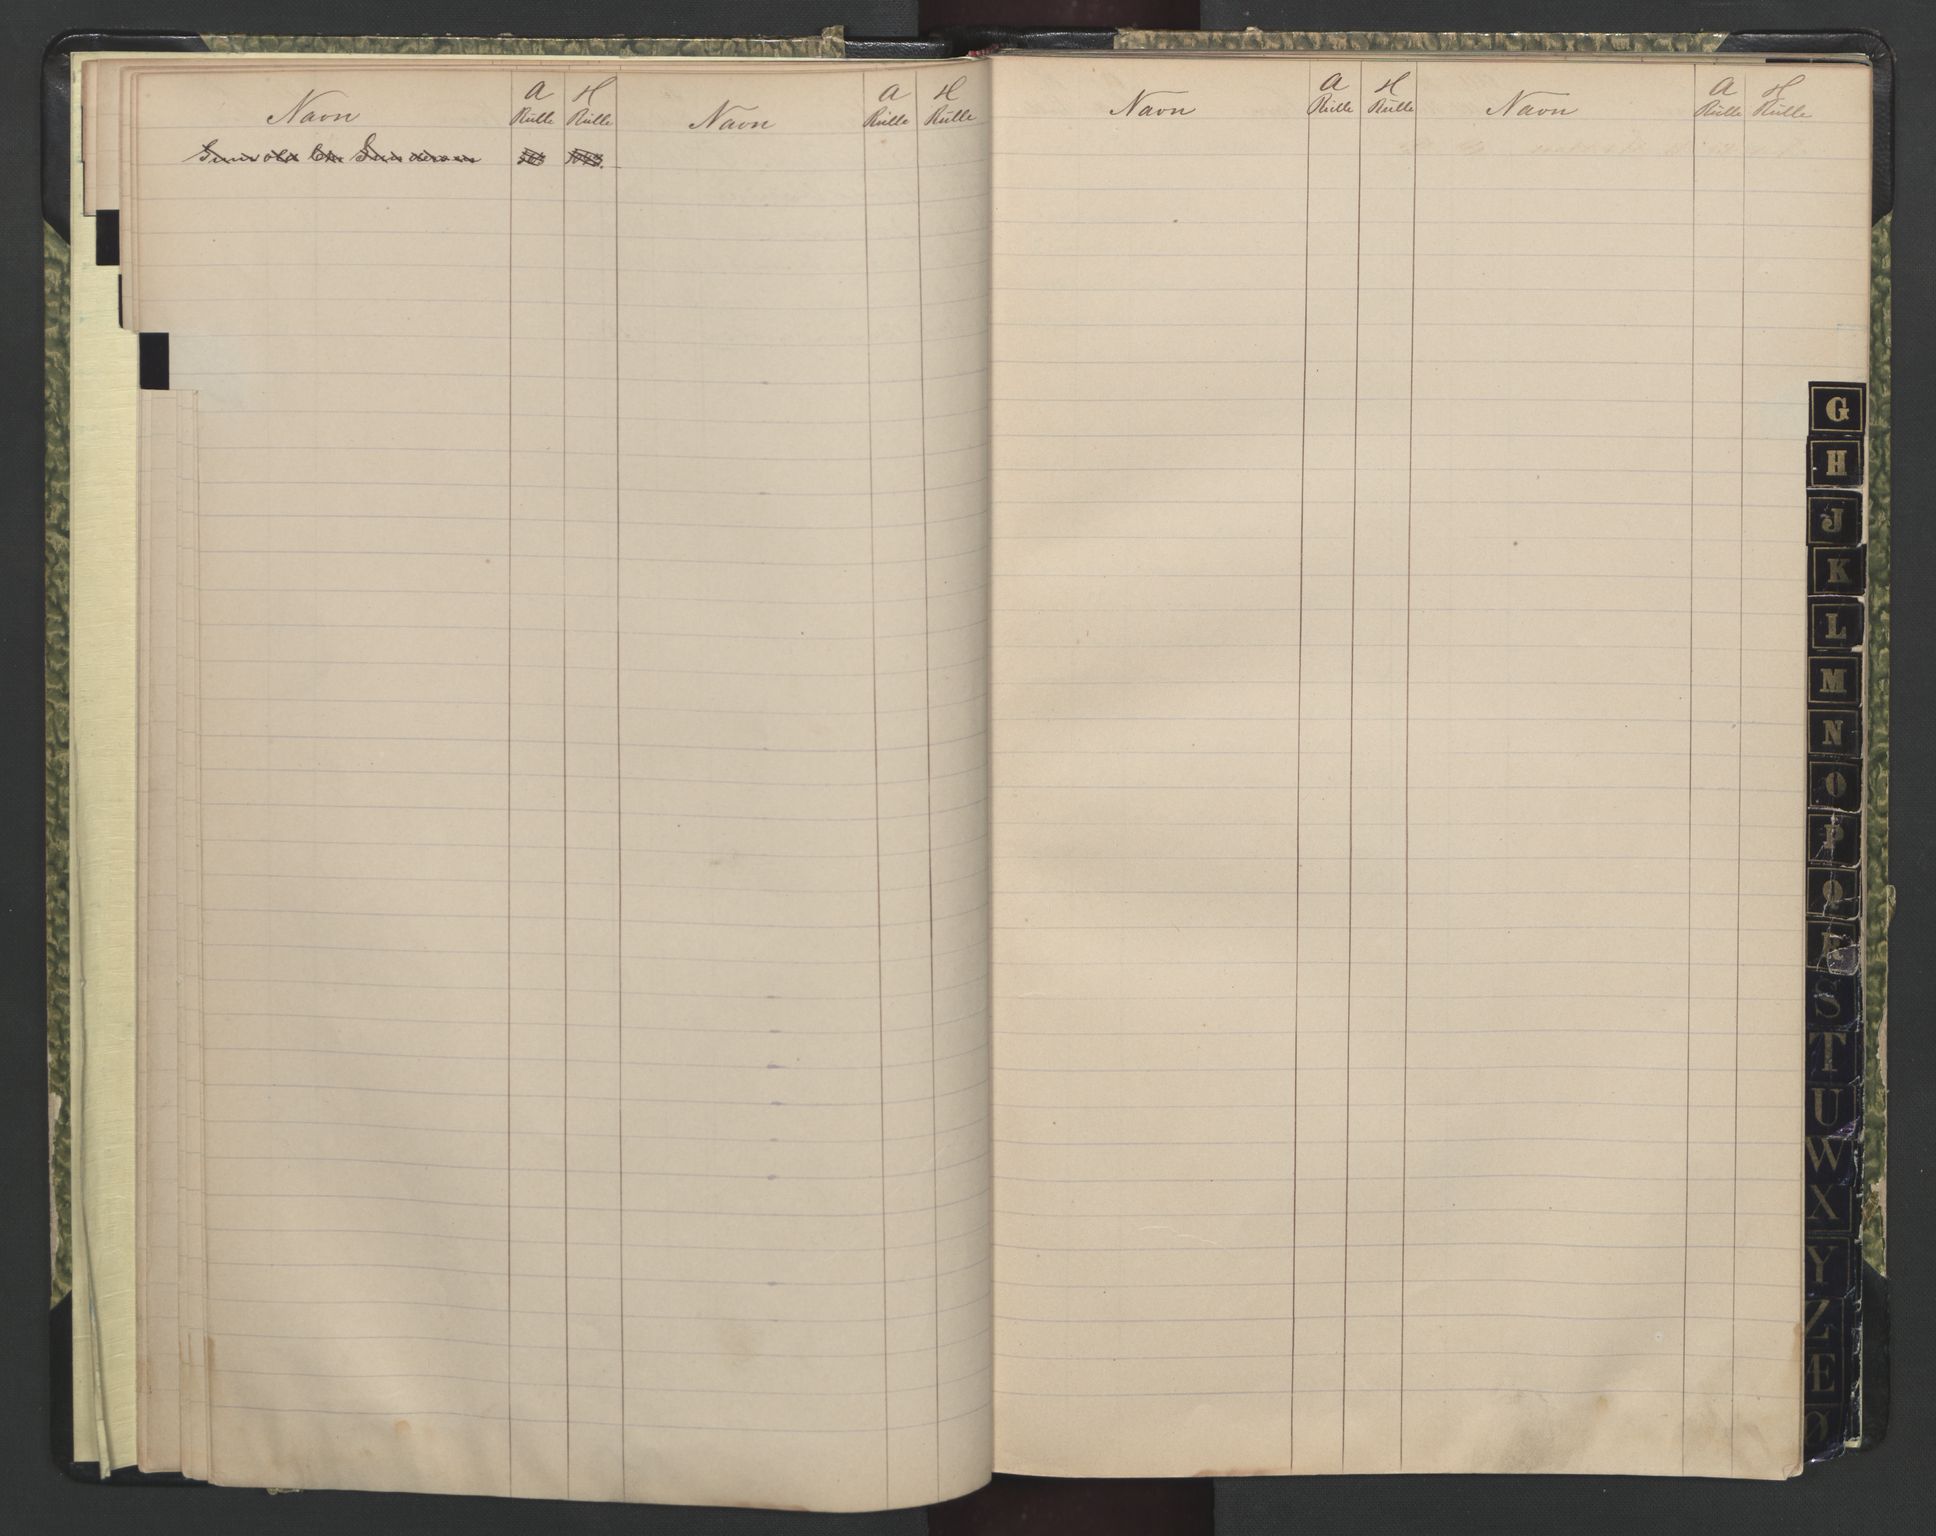 Navn A Rulle H Rulle Navn A Rulle H Rulle
Navn A Rulle H Rulle Navn A Rulle H Rulle
G
H
J
K
L
M
N
O
P
Q
R
S
T
U
W
X
Y
Z
Æ
Ø